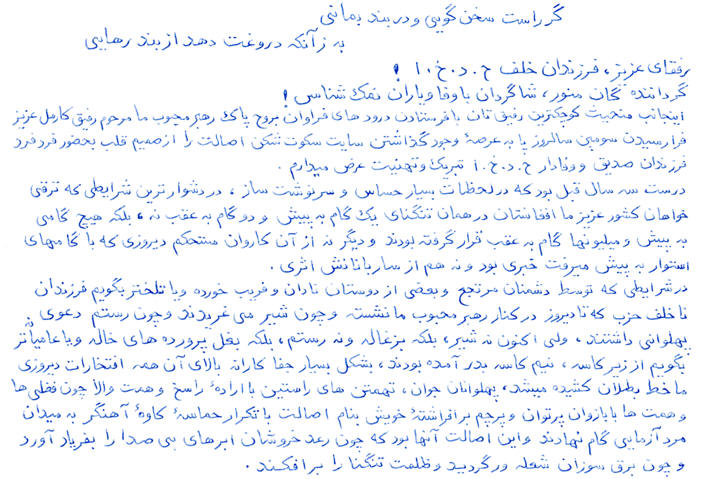 گر راست سخن گویی و در بند بمانی
به ز آنکه دروغت دهد از بند رهایی
رفقای عزیز، فرزندان خلف ح . د . خ . ا !
گرداننده گان منور، شاگردان با وفا و یاران نمک شناس !
اینجانب منحیث کوچکترین رفیق تان با فرستادن درود های فراوان بروح پاک رهبر محبوب ما مرحوم رفیق کارمل عزیز
فرا رسیدن سومین سالروز پا به عرصۀ وجود گذاشتن سایت سکوت شکن اصالت را از صمیم قلب بحضور فرد فرد
فرزندان صدیق و وفادار ح . د . خ . ا تبریک و تهنیت عرض میدارم .
درست سه سال قبل بود که در لحظات بسیار حساس و سرنوشت ساز ، در دشوار ترین شرایطی که ترقی
خواهان کشور عزیز ما افغانستان در همان تنگنای یک گام به پیش و دو گام به عقب نه ، بلکه هیچ گامی
به پیش و میلیونها گام به عقب قرار گرفته بودند و دیگر نه از آن کاروان مستحکم دیروزی که با گامهای
استوار به پیش میرفت خبری بود و نه هم از ساربانانش اثری .
در شرایطی که توسط دشمنان مرتجع و بعضی از دوستان نادان و فریب خورده و یا تلختر بگویم فرزندان
نا خلف حزب که تا دیروز در کنار رهبر محبوب ما نشسته و چون شیر می غریدند و چون رستم دعوی
پهلوانی داشتند ، ولی اکنون نه شیر ، بلکه بزغاله و نه رستم ، بلکه بغل پرورده های خاله و یا عامیانتر
بگویم از زیر کاسه ، نیم کاسه بدر آمده بودند ، بشکل بسیار جفا کارانه بالای آن همه افتخارات دیروزی
ما خط بطلان کشیده میشد ، پهلوانان جوان ، تهمتن های راستین با ارادۀ راسخ و همت والا چون فضلی ها
و همت ها با بازوان پرتوان و پرچم بر افراشتۀ خویش بنام اصالت با تکرار حماسۀ کاوۀ آهنگر به میدان
مرد آزمایی گام نهادند و این اصالت آنها بود که چون رعد خروشان ابرهای بی صدا را بفریاد آورد
و چون برق سوزان شعله ور گردید و ظلمت تنگنا را بر افکند .